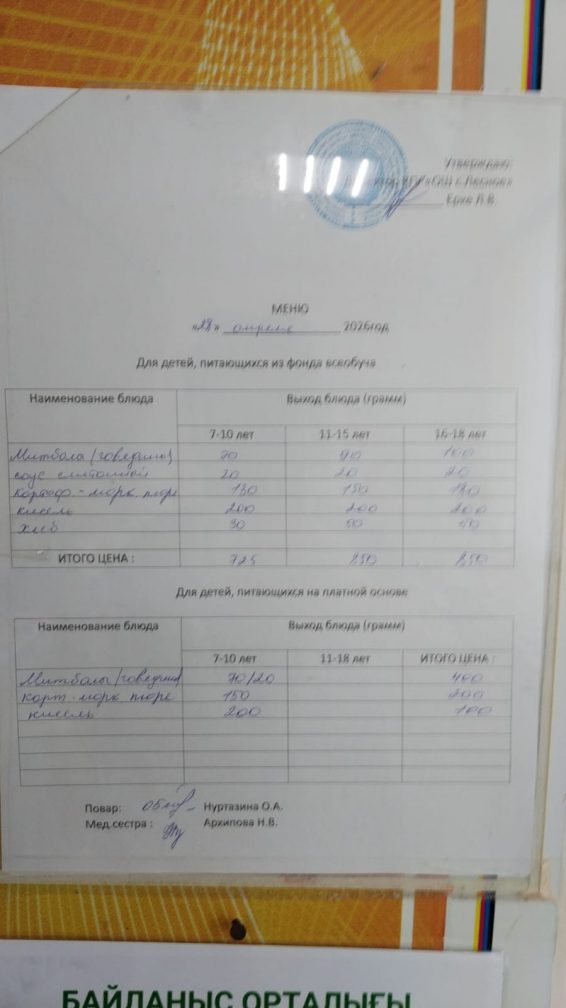 Утверждаю:
КГУ «ОШ с.Лесное»
Ерке Л.В.
МЕНЮ
«28» апреля 2026год
Для детей, питающихся из фонда всеобуча
Наименование блюда Выход блюда (грамм)
7-10 лет 11-15 лет 16-18 лет
Митбола (говядина) 70 90 100
соус сметанной 20 20 20
картоф.-морк. пюре 150 180 180
кисель 200 200 200
хлеб 30 50 50
ИТОГО ЦЕНА : 725 850 850
Для детей, питающихся на платной основе
Наименование блюда Выход блюда (грамм)
7-10 лет 11-18 лет ИТОГО ЦЕНА :
Митболы (говядина) 70/20 400
карт-морк пюре 150 200
кисель 200 100
Повар: Нуртазина О.А.
Мед.сестра : Архипова Н.В.
БАЙЛАНЫС ОРТАЛЫҒЫ